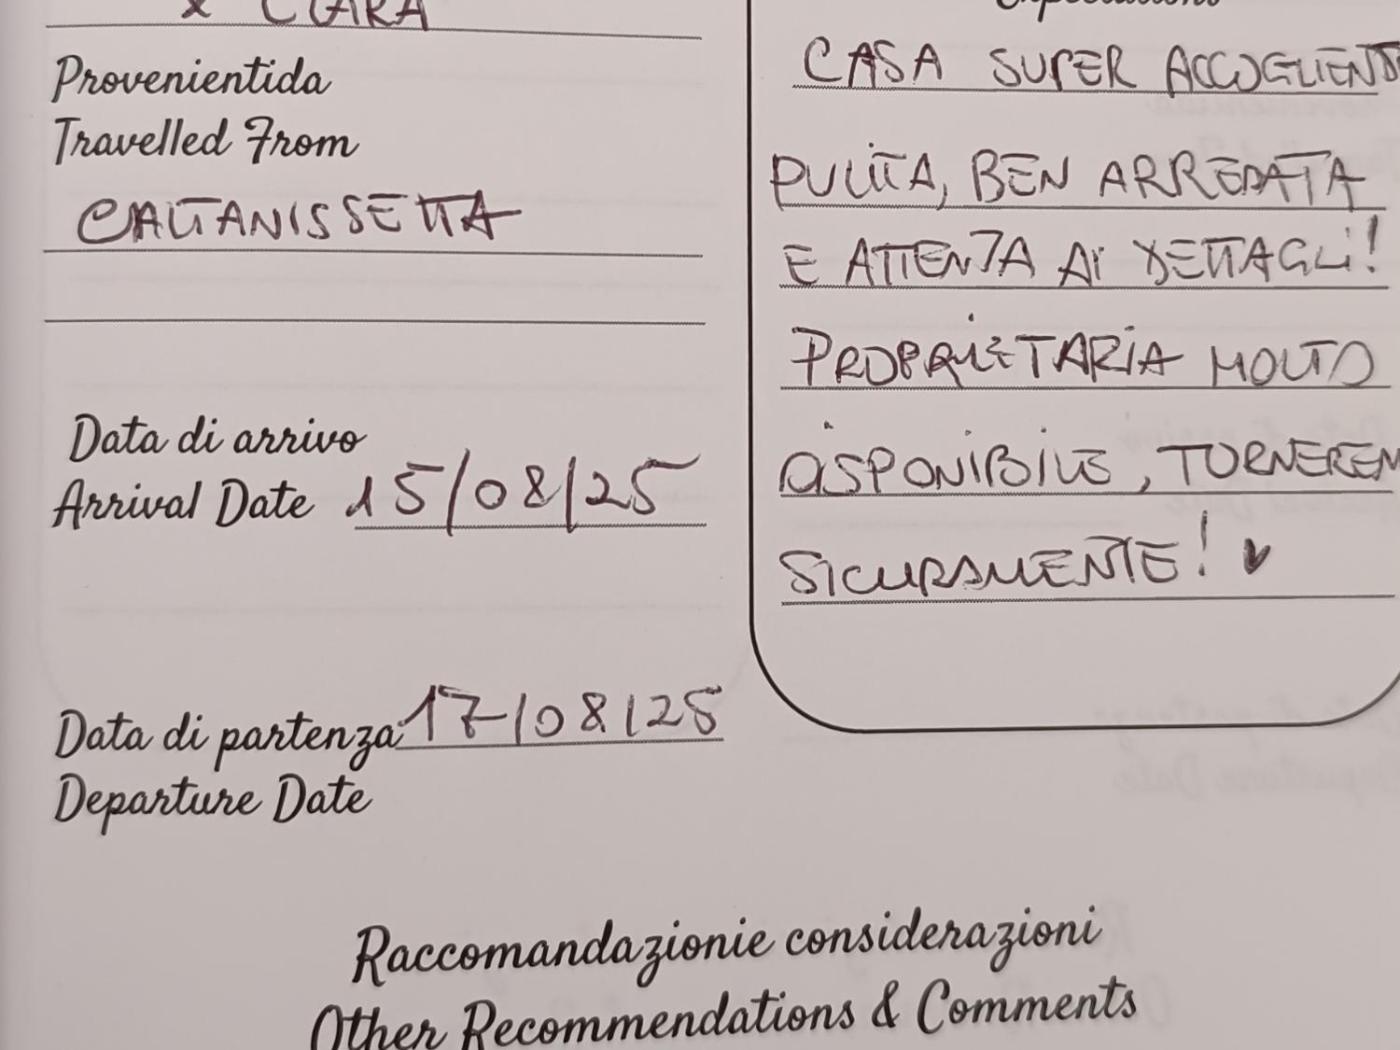 CLARA
Provenientida
Travelled From
CALTANISSETTA
Data di arrivo
Arrival Date 15/08/25
Data di partenza 17/08/25
Departure Date
CASA SUPER ACCOGLIENTE
PULITA, BEN ARREDATA
E ATTENTA AI DETTAGLI!
PROPRIETARIA MOLTO
DISPONIBILE, TORNEREM
SICURAMENTE! ♥
Raccomandazionie considerazioni
Other Recommendations & Comments